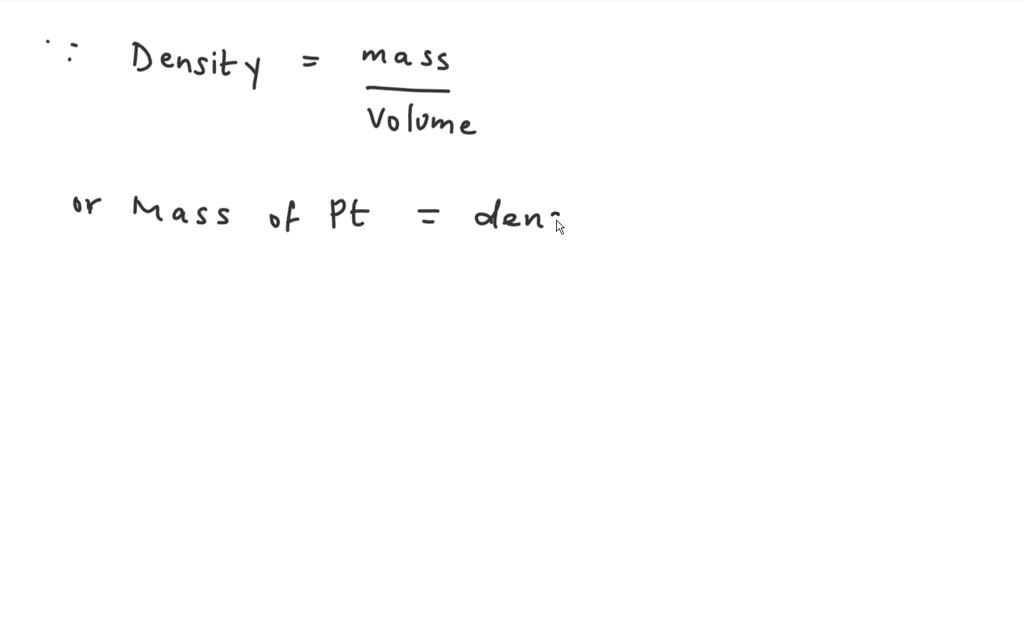 ∵ Density = mass / Volume
or Mass of Pt = den